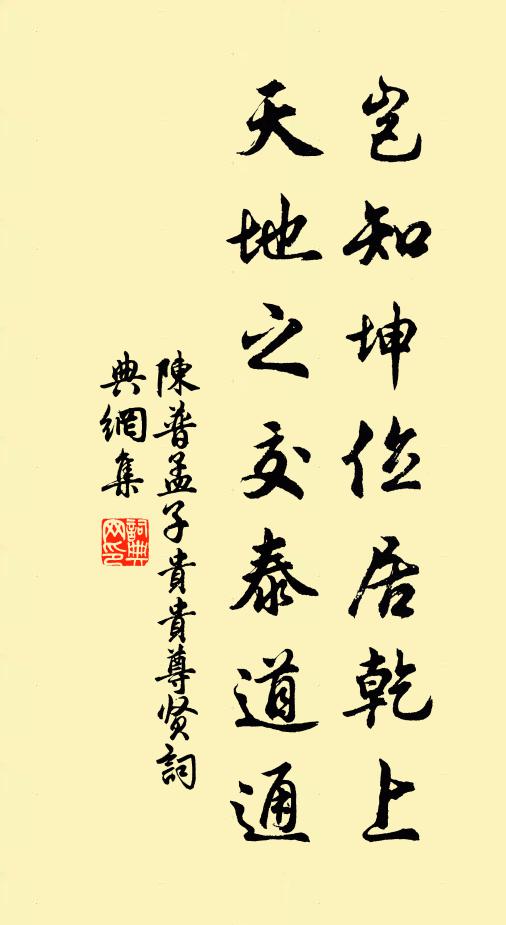 豈知坤位居乾上
天地之交泰道通
陳普孟子貴貴尊贤詞
典網集
詞典网印